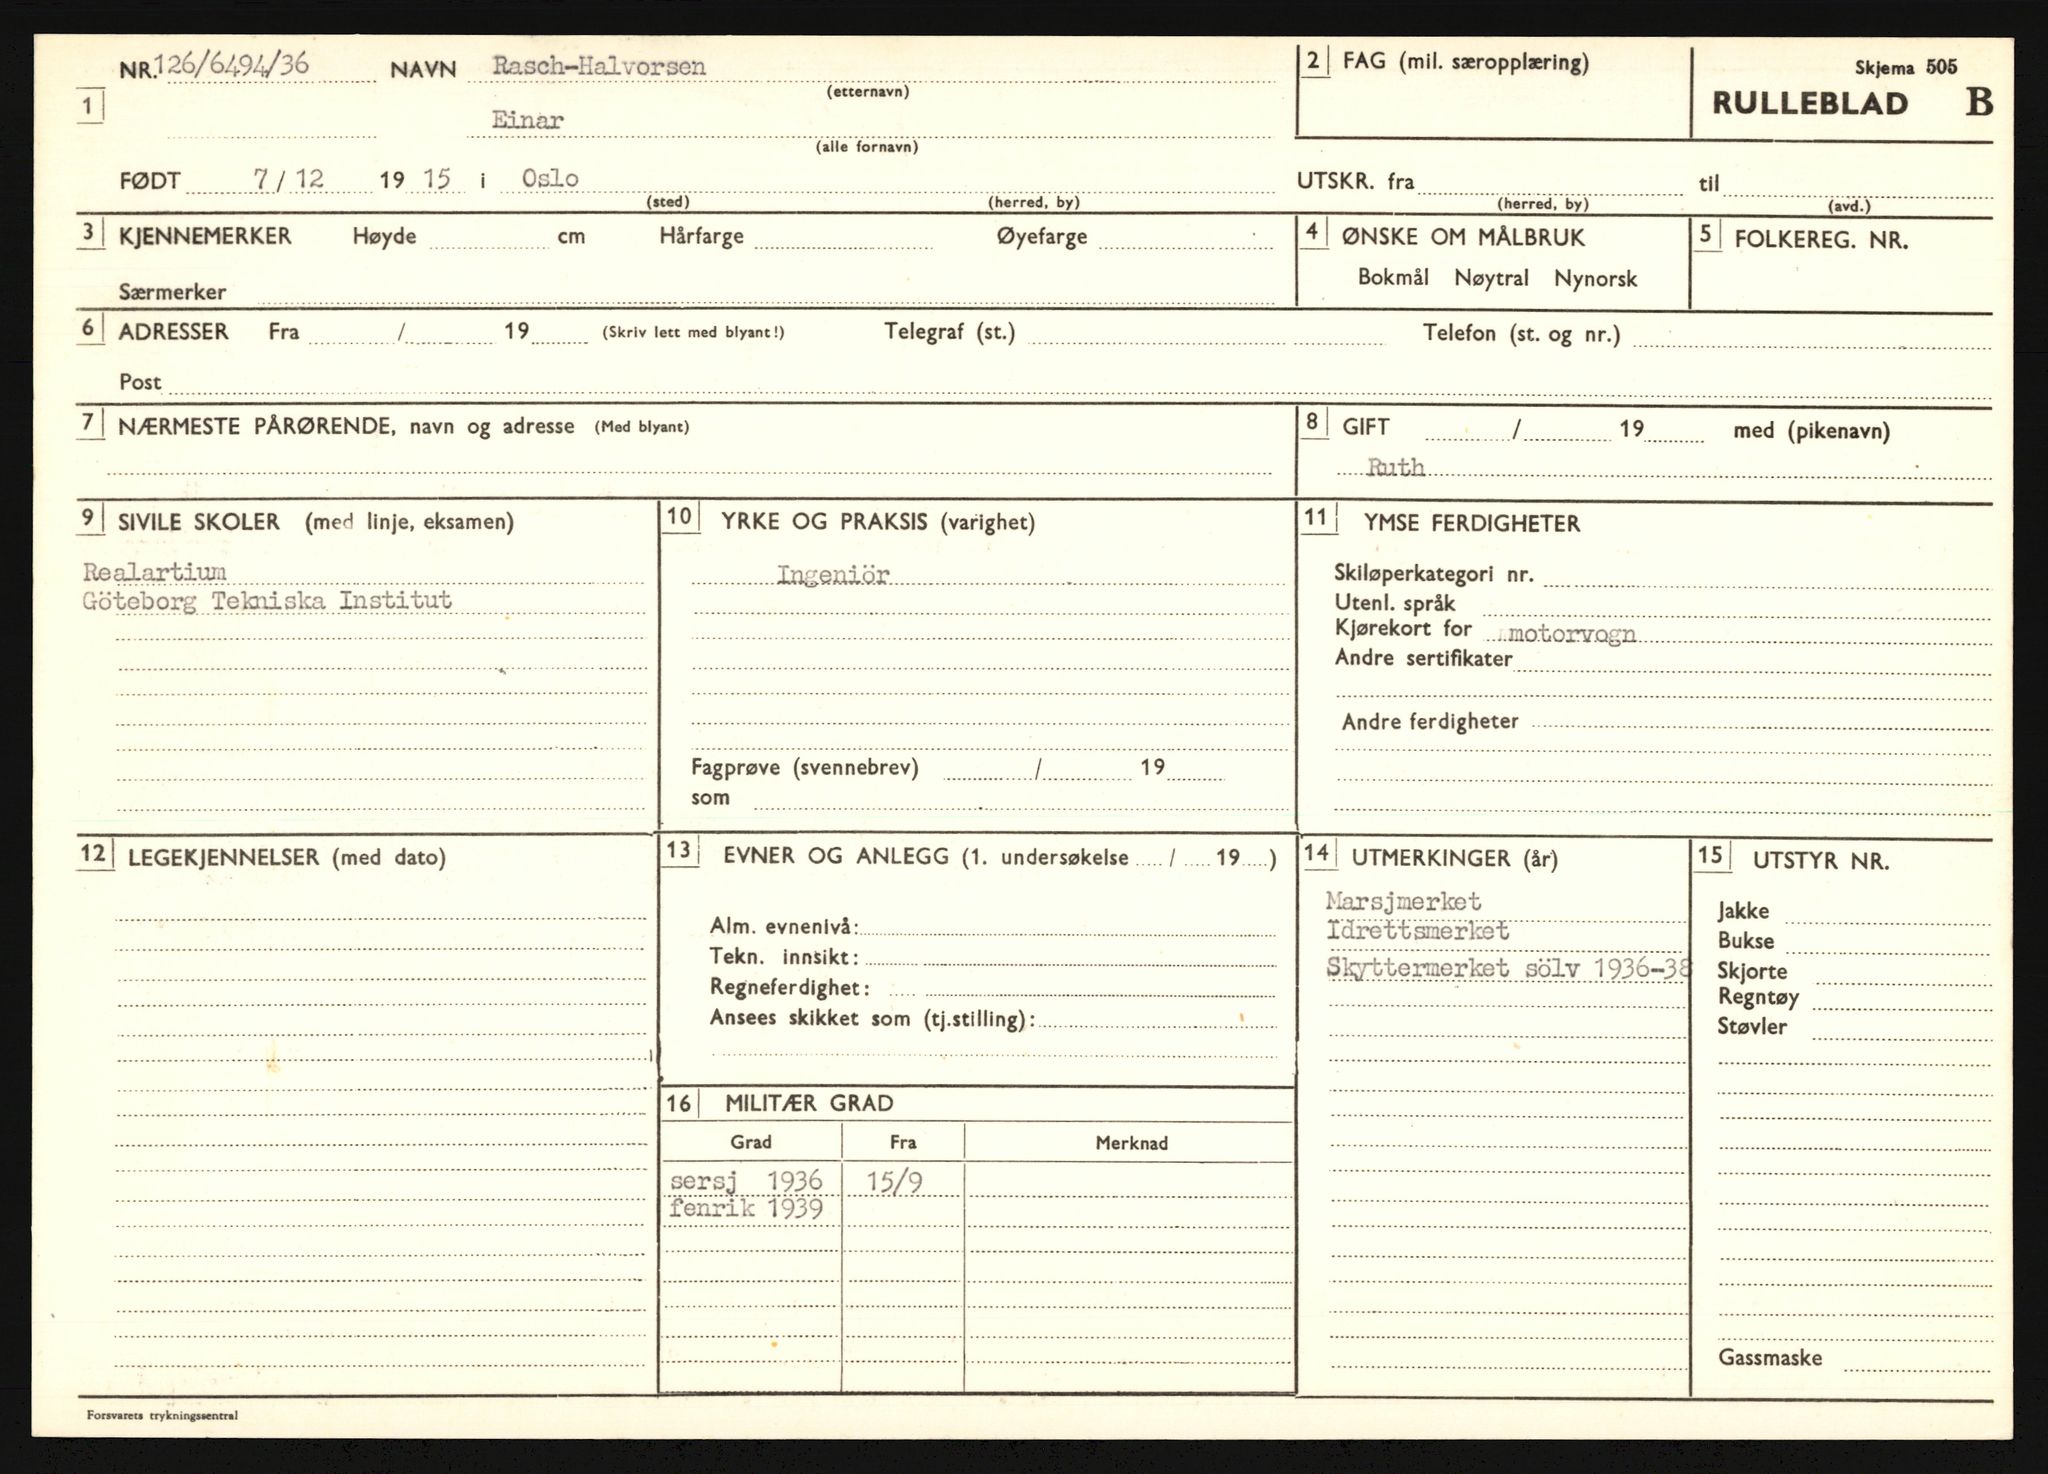 NR. 126/6494/36 NAVN Rasch-Halvorsen
(etternavn)
2 FAG (mil. særopplæring)
Skjema 505
RULLEBLAD B
1
Einar
(alle fornavn)
FØDT 7 / 12 19 15 i Oslo
(sted) (herred, by)
UTSKR. fra til
(herred, by) (avd.)
3 KJENNEMERKER Høyde cm Hårfarge Øyefarge
Særmerker
4 ØNSKE OM MÅLBRUK
Bokmål Nøytral Nynorsk
5 FOLKEREG. NR.
6 ADRESSER Fra / 19 (Skriv lett med blyant!) Telegraf (st.) Telefon (st. og nr.)
Post
7 NÆRMESTE PÅRØRENDE, navn og adresse (Med blyant)
8 GIFT / 19 med (pikenavn)
Ruth
9 SIVILE SKOLER (med linje, eksamen)
Realartium
Göteborg Tekniska Institut
10 YRKE OG PRAKSIS (varighet)
Ingeniör
Fagprøve (svennebrev) / 19
som
11 YMSE FERDIGHETER
Skiløperkategori nr.
Utenl. språk
Kjørekort for motorvogn
Andre sertifikater
Andre ferdigheter
12 LEGEKJENNELSER (med dato)
13 EVNER OG ANLEGG (1. undersøkelse / 19 )
Alm. evnenivå:
Tekn. innsikt:
Regneferdighet:
Ansees skikket som (tj.stilling):
14 UTMERKINGER (år)
Marsjmerket
Idrettsmerket
Skyttermerket sölv 1936-38
15 UTSTYR NR.
Jakke
Bukse
Skjorte
Regntøy
Støvler
Gassmaske
16 MILITÆR GRAD
Grad Fra Merknad
sersj 1936 15/9
fenrik 1939
Forsvarets trykningssentral